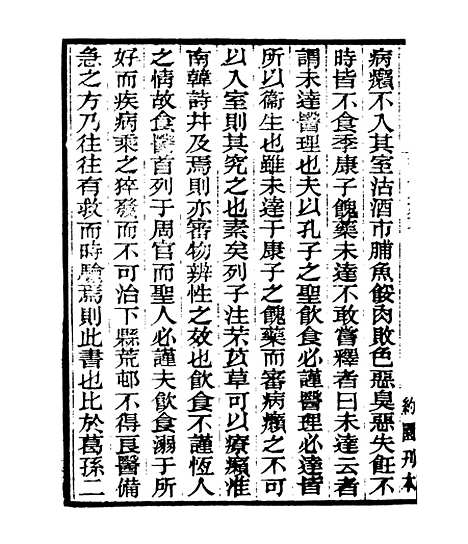 病癘不入其室沽酒市脯魚餒肉敗色惡臭惡失飪不
時皆不食季康子餽藥未達不敢嘗釋者曰未達云者
謂未達醫理也夫以孔子之聖飲食必謹醫理必達皆
所以衞生也雖未達于康子之餽藥而審病癘之不可
以入室則其究之也素矣列子注芣苡草可以療癘淮
南韓詩幷及焉則亦審物辨性之效也飲食不謹恆人
之情故食醫首列于周官而聖人必謹夫飲食溺于所
好而疾病乘之猝發而不可治下縣荒邨不得良醫備
急之方乃往往有救而時驗焉則此書也比於葛孫二
約園刊本